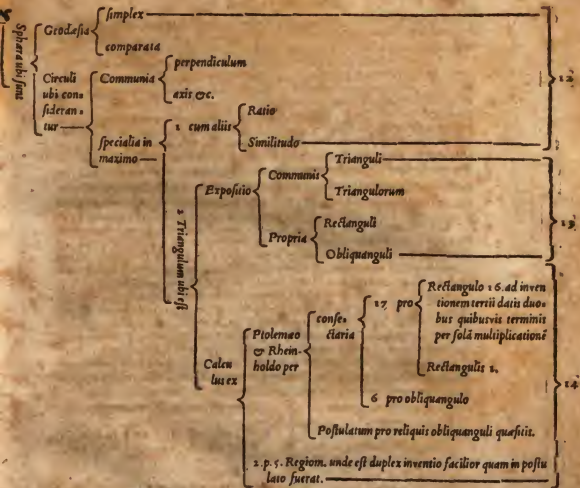 Sphæra ubi sunt
Geodæsia
simplex
comparata
Circuli
ubi con-
sideran-
tur
Communia
perpendiculum
axis &c.
specialia in
maximo
1 cum aliis
Ratio
Similitudo
12
2 Triangulum ubi est
Expositio
Communis
Trianguli
Triangulorum
Propria
Rectanguli
Obliquanguli
13
Calcu
lus ex
Ptolemæo
& Rhein-
holdo per
conse-
ctaria
17 pro
Rectangulo 16. ad inven
tionem tertii datis duo-
bus quibusvis terminis
per solā multiplicationē
Rectangulis 1.
6 pro obliquangulo
Postulatum pro reliquis obliquanguli quæsitis.
2. p. 5. Regiom. unde est duplex inventio facilior quam in postu
lato fuerat.
14